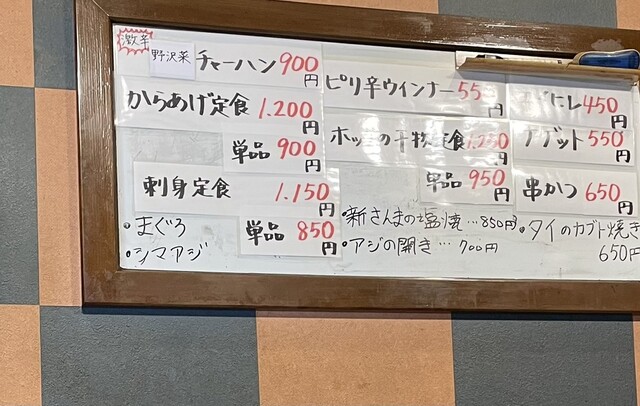 激辛 野沢菜 チャーハン 900円
からあげ定食 1.200円
単品 900円
刺身定食 1.150円
・まぐろ 単品 850円
・シマアジ
ピリ辛ウインナー 55
ホッ の干物定食 1.250円
単品 950円
・新さんまの塩焼…850円
・アジの開き…700円
にし 450円
ナゲット 550円
串かつ 650円
・タイのカブト焼き
650円